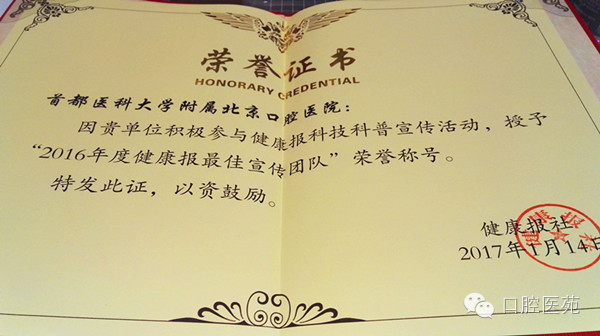 荣誉证书
HONORARY CREDENTIAL
首都医科大学附属北京口腔医院：
因贵单位积极参与健康报科技科普宣传活动，授予
“2016年度健康报最佳宣传团队”荣誉称号。
特发此证，以资鼓励。
健康报社
2017年1月14日
口腔医苑